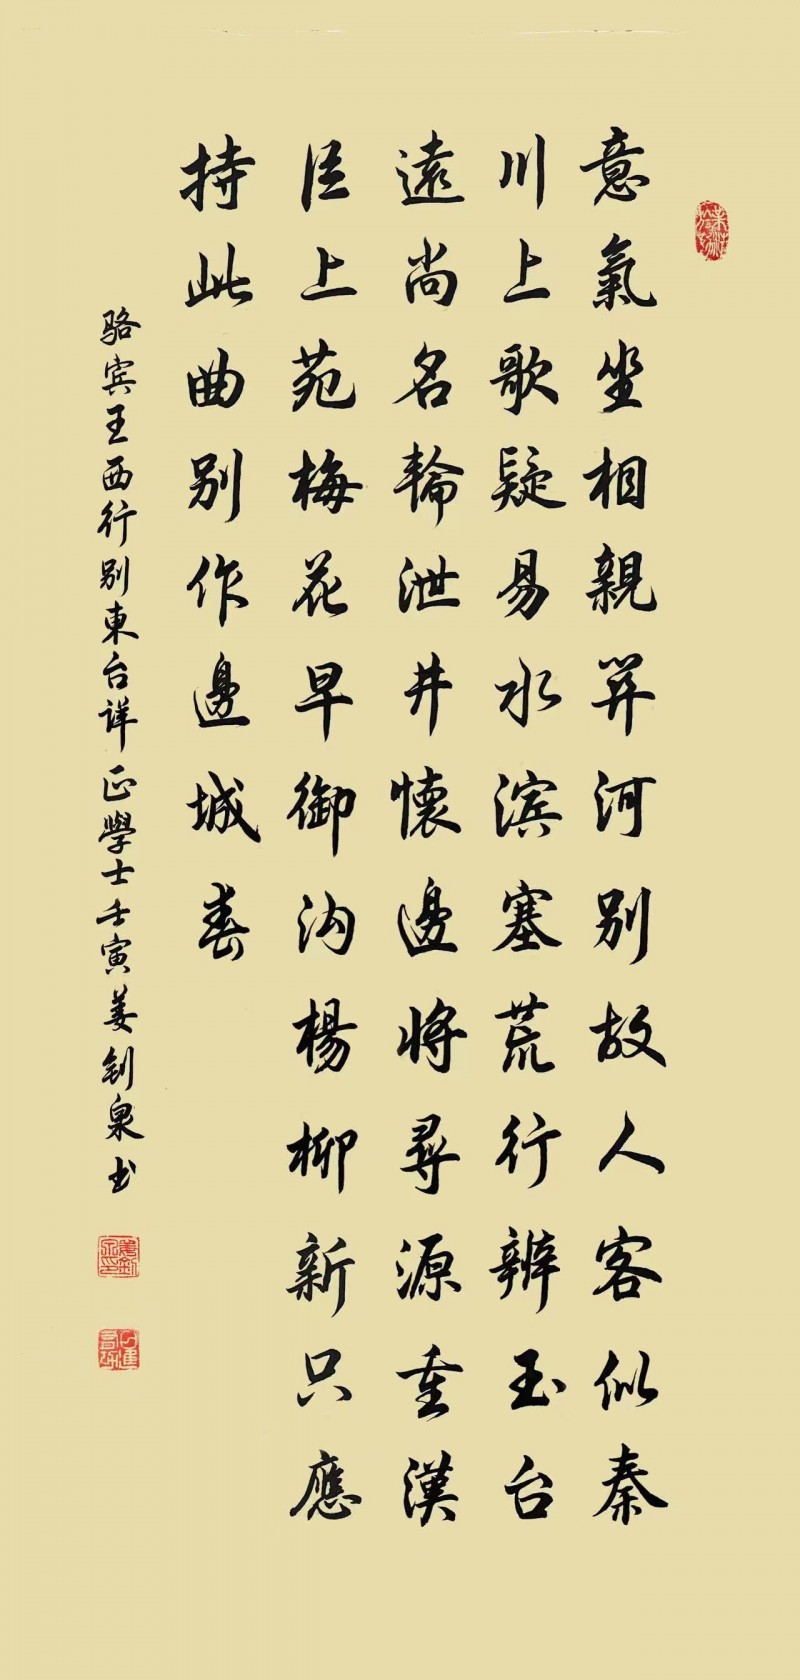 意氣坐相親关河别故人客似秦
川上歌疑易水滨塞荒行辨玉台
遠尚名輪泄井懷邊將尋源重漢
臣上苑梅花早御沟楊柳新只應
持此曲别作邊城春
骆宾王西行别東台详正學士壬寅姜钊泉书